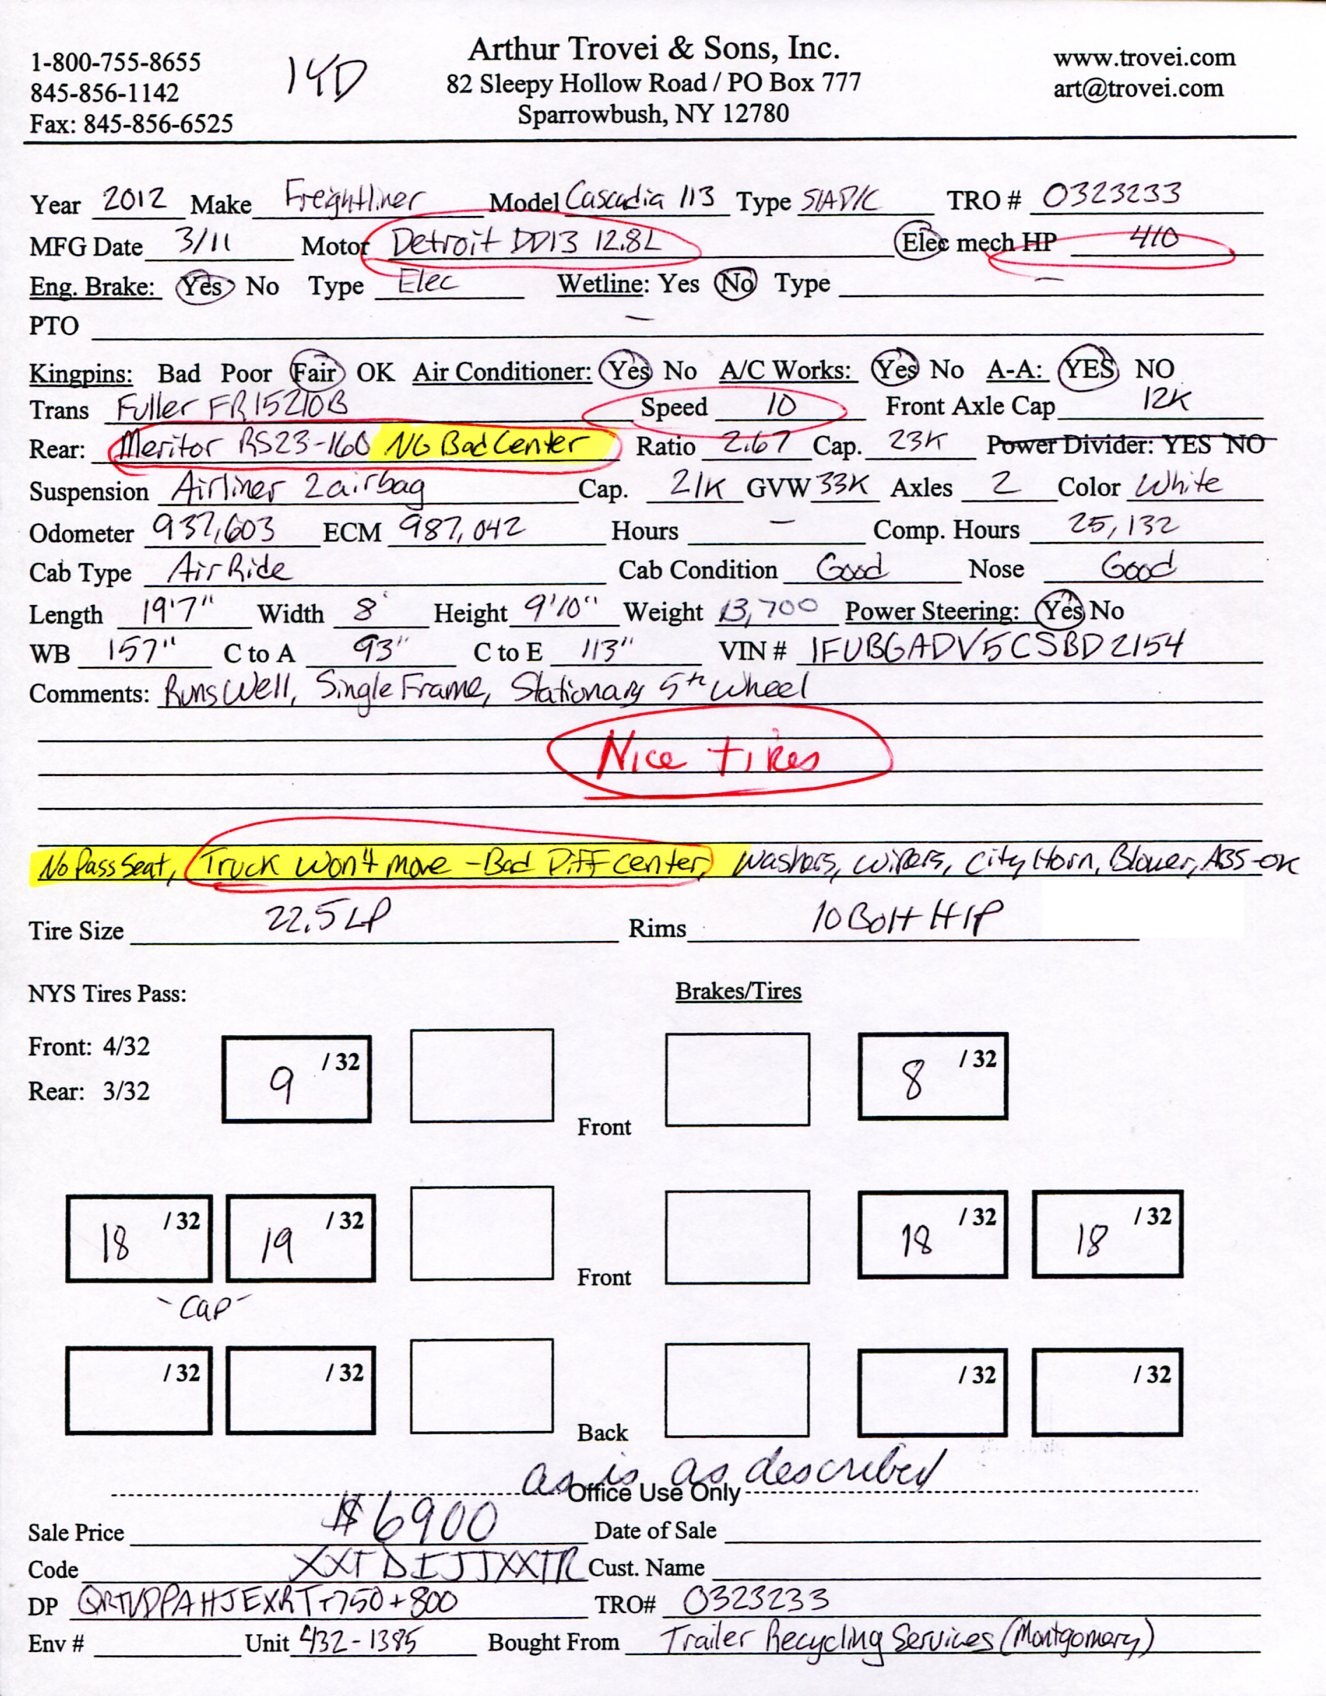 Arthur Trovei & Sons, Inc.
82 Sleepy Hollow Road / PO Box 777
Sparrowbush, NY 12780
1-800-755-8655
845-856-1142
Fax: 845-856-6525
14D
www.trovei.com
art@trovei.com
Year 2012 Make Freightliner Model Cascadia 113 Type S/AD/C TRO # 0323233
MFG Date 3/11 Motor Detroit DD13 12.8L Elec mech HP 410
Eng. Brake: Yes No Type Elec Wetline: Yes No Type —
PTO —
Kingpins: Bad Poor Fair OK Air Conditioner: Yes No A/C Works: Yes No A-A: YES NO
Trans Fuller FR15210B Speed 10 Front Axle Cap 12K
Rear: Meritor RS23-160 NG Bad Center Ratio 2.67 Cap. 23K Power Divider: YES NO
Suspension Airliner 2airbag Cap. 21K GVW 33K Axles 2 Color White
Odometer 937,603 ECM 987,042 Hours — Comp. Hours 25,132
Cab Type Air Ride Cab Condition Good Nose Good
Length 19'7" Width 8' Height 9'10" Weight 13,700 Power Steering: Yes No
WB 157" C to A 93" C to E 113" VIN # 1FUBGADV5CSBD2154
Comments: Runs Well, Single Frame, Stationary 5th Wheel
Nice tires
No Pass Seat, Truck Won't move - Bad Diff center, washers, wipers, City Horn, Blower, ABS-OK
Tire Size 22.5 LP Rims 10 Bolt H/P
NYS Tires Pass: Brakes/Tires
Front: 4/32
Rear: 3/32
9 /32 Front 8 /32
18 /32 19 /32 Front 18 /32 18 /32
- Cap -
/32 /32 Back /32 /32
as is as described
Office Use Only
Sale Price $6900 Date of Sale
Code XXTDIJJXXTR Cust. Name
DP QRTVDPAHJEXRT+750+800 TRO# 0323233
Env # Unit 432-1385 Bought From Trailer Recycling Services (Montgomery)